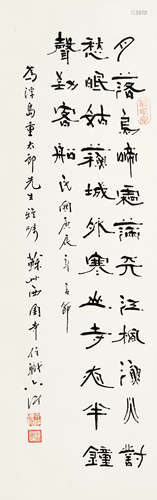 月落烏啼霜滿天江楓漁火對
愁眠姑蘇城外寒山寺夜半鐘
聲到客船
民國庚辰
為浮島重太郎先生雅囑
蘇州西園寺住職六淨